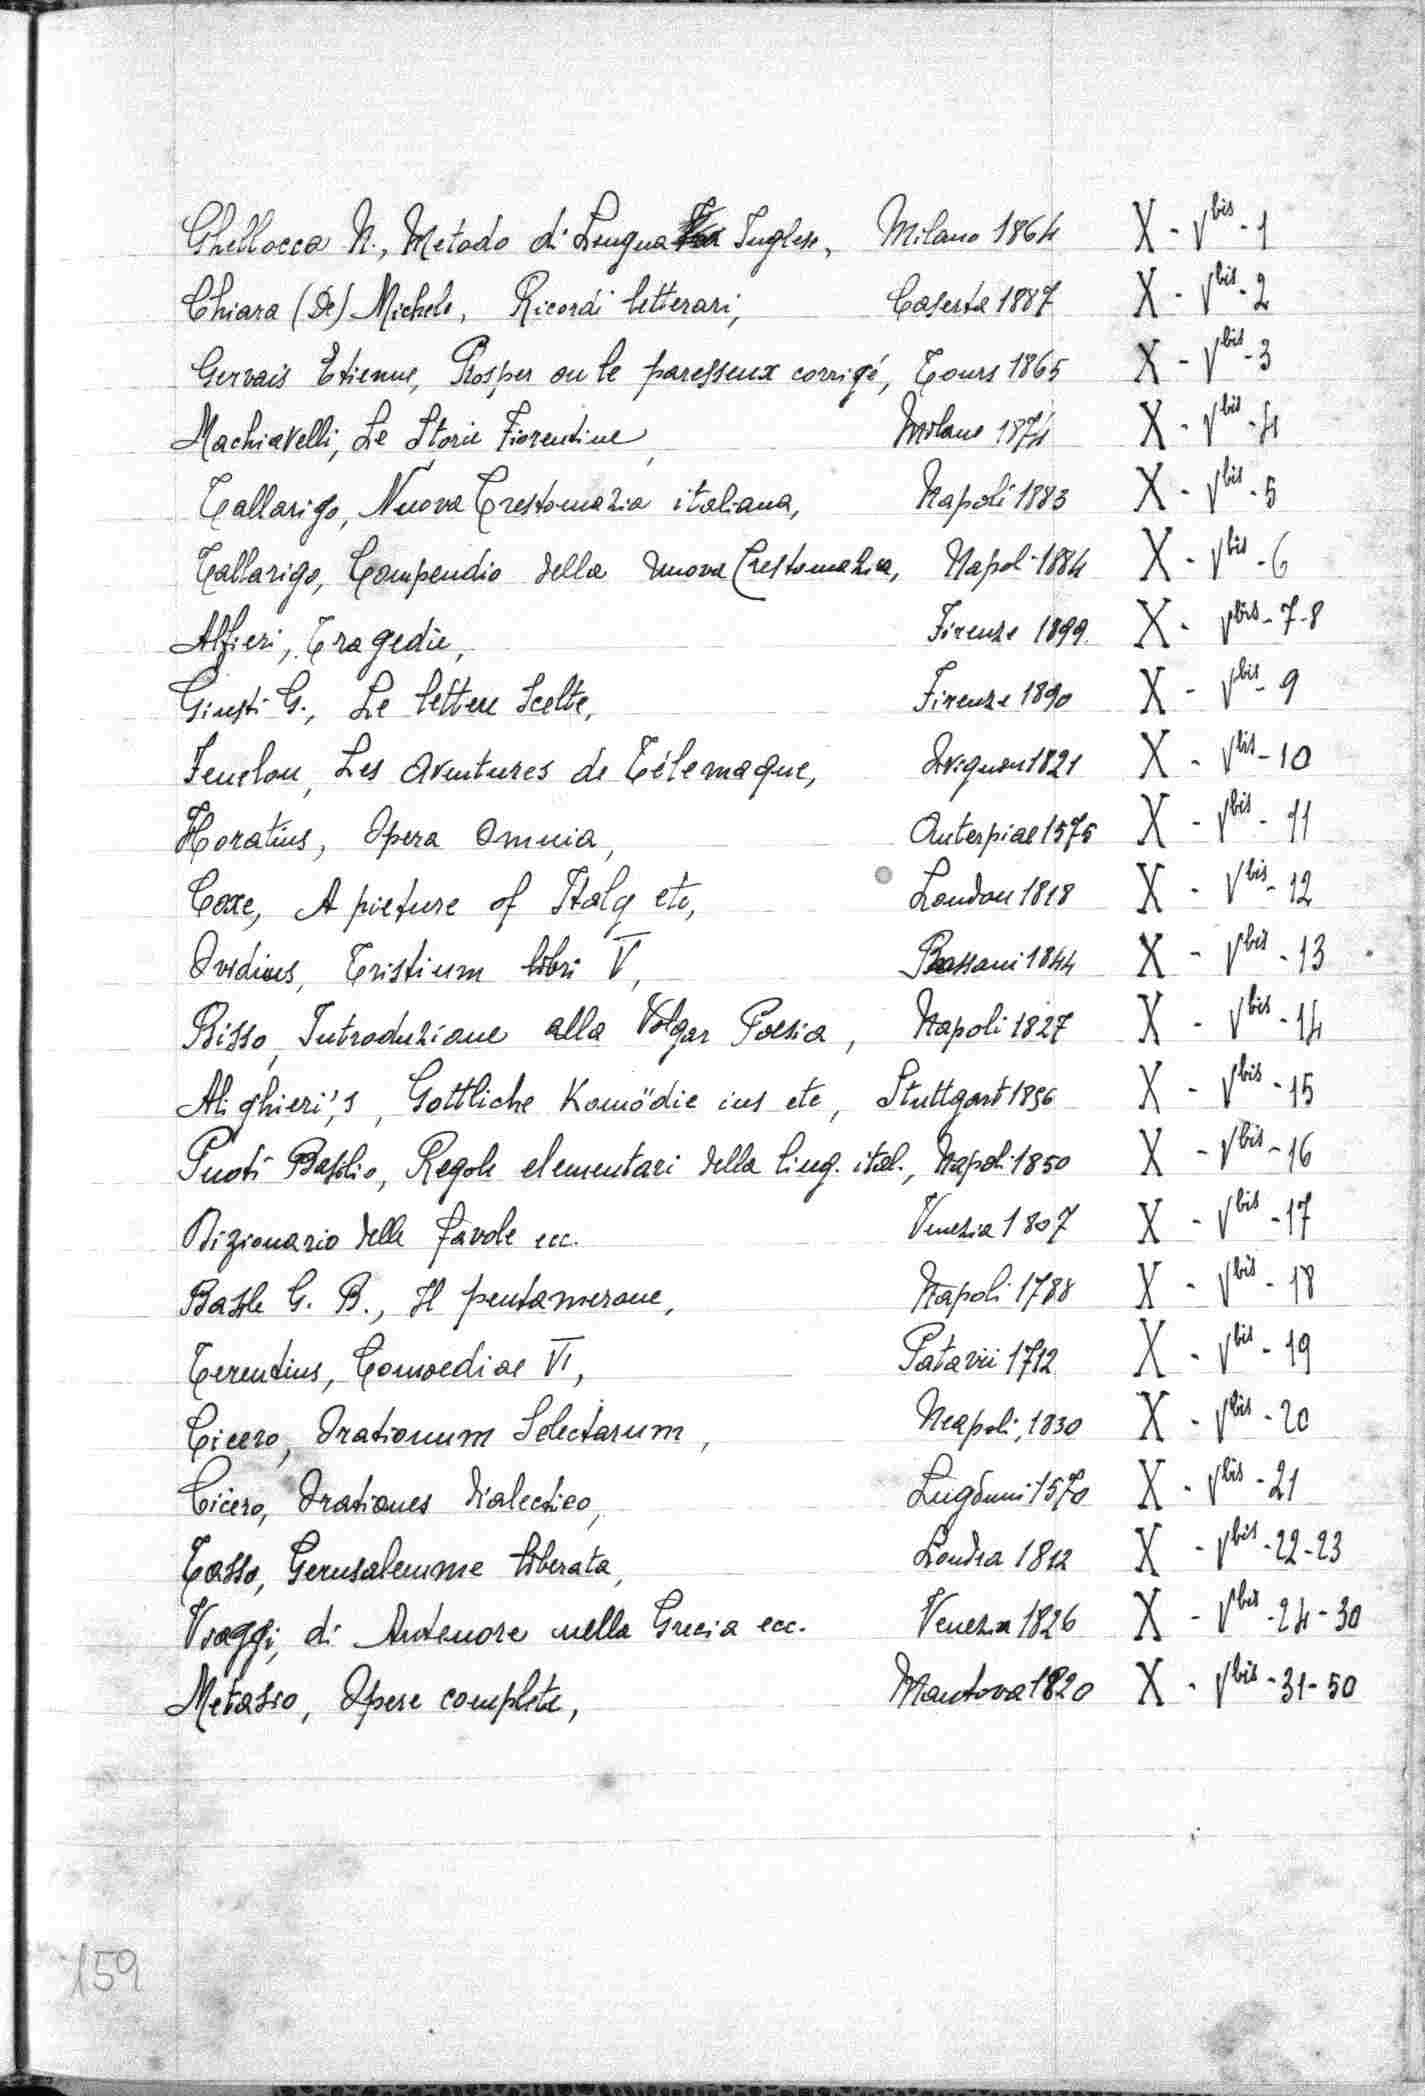 Ghellocca N., Metodo di Lengua Inglese, Milano 1864 X - Vbis - 1
Chiara (De) Michele, Ricordi letterari, Caserta 1887 X - Vbis - 2
Gervais Etienne, Prosper ou le paresseux corrigé, Tours 1865 X - Vbis - 3
Machiavelli, Le Storie Fiorentine, Milano 1874 X - Vbis - 4
Tallarigo, Nuova Crestomazia italiana, Napoli 1883 X - Vbis - 5
Tallarigo, Compendio della nuova Crestomazia, Napoli 1884 X - Vbis - 6
Alfieri, Tragedie, Firenze 1899 X - Vbis - 7-8
Giusti G., Le lettere Scelte, Firenze 1890 X - Vbis - 9
Fenelon, Les Aventures de Télemaque, Avignon 1821 X - Vbis - 10
Horatius, Opera Omnia, Anterpiae 1575 X - Vbis - 11
Coxe, A picture of Italy etc, London 1818 X - Vbis - 12
Ovidius, Tristium libri V, Bassani 1844 X - Vbis - 13
Bisso, Introduzione alla Volgar Poesia, Napoli 1827 X - Vbis - 14
Alighieri's, Gottliche Komödie ins etc, Stuttgart 1856 X - Vbis - 15
Puoti Basilio, Regole elementari della ling. ital., Napoli 1850 X - Vbis - 16
Dizionario delle favole ecc. Venezia 1807 X - Vbis - 17
Basile G. B., Il pentamerone, Napoli 1788 X - Vbis - 18
Terentius, Comoediae VI, Patavii 1712 X - Vbis - 19
Cicero, Orationum Selectarum, Neapoli, 1830 X - Vbis - 20
Cicero, Orationes dialectico, Lugduni 1570 X - Vbis - 21
Tasso, Gerusalemme liberata, Londra 1812 X - Vbis - 22-23
Viaggi, di Antenore nella Grecia ecc. Venezia 1826 X - Vbis - 24-30
Metasio, Opere complete, Mantova 1820 X - Vbis - 31-50
159